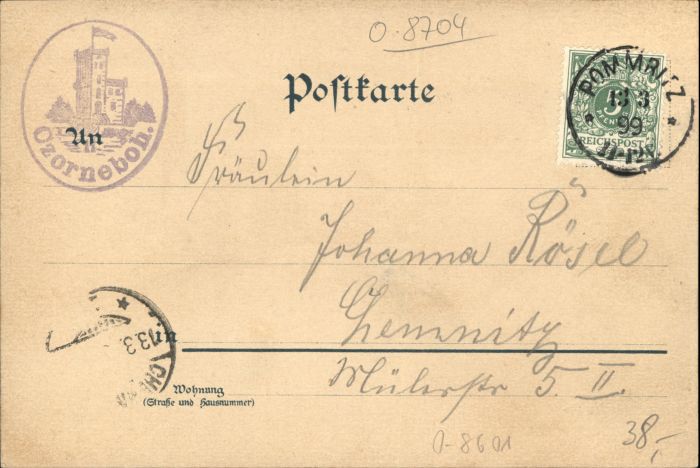 O-8704
Postkarte
POMMRITZ
13 3
99
11-12V.
REICHSPOST
An
Czorneboh.
Fräulein
Johanna Rösel
Chemnitz
in
13.3
CHE
Wohnung
(Straße und Hausnummer)
Müllerstr 5 II.
O-8601
38,-